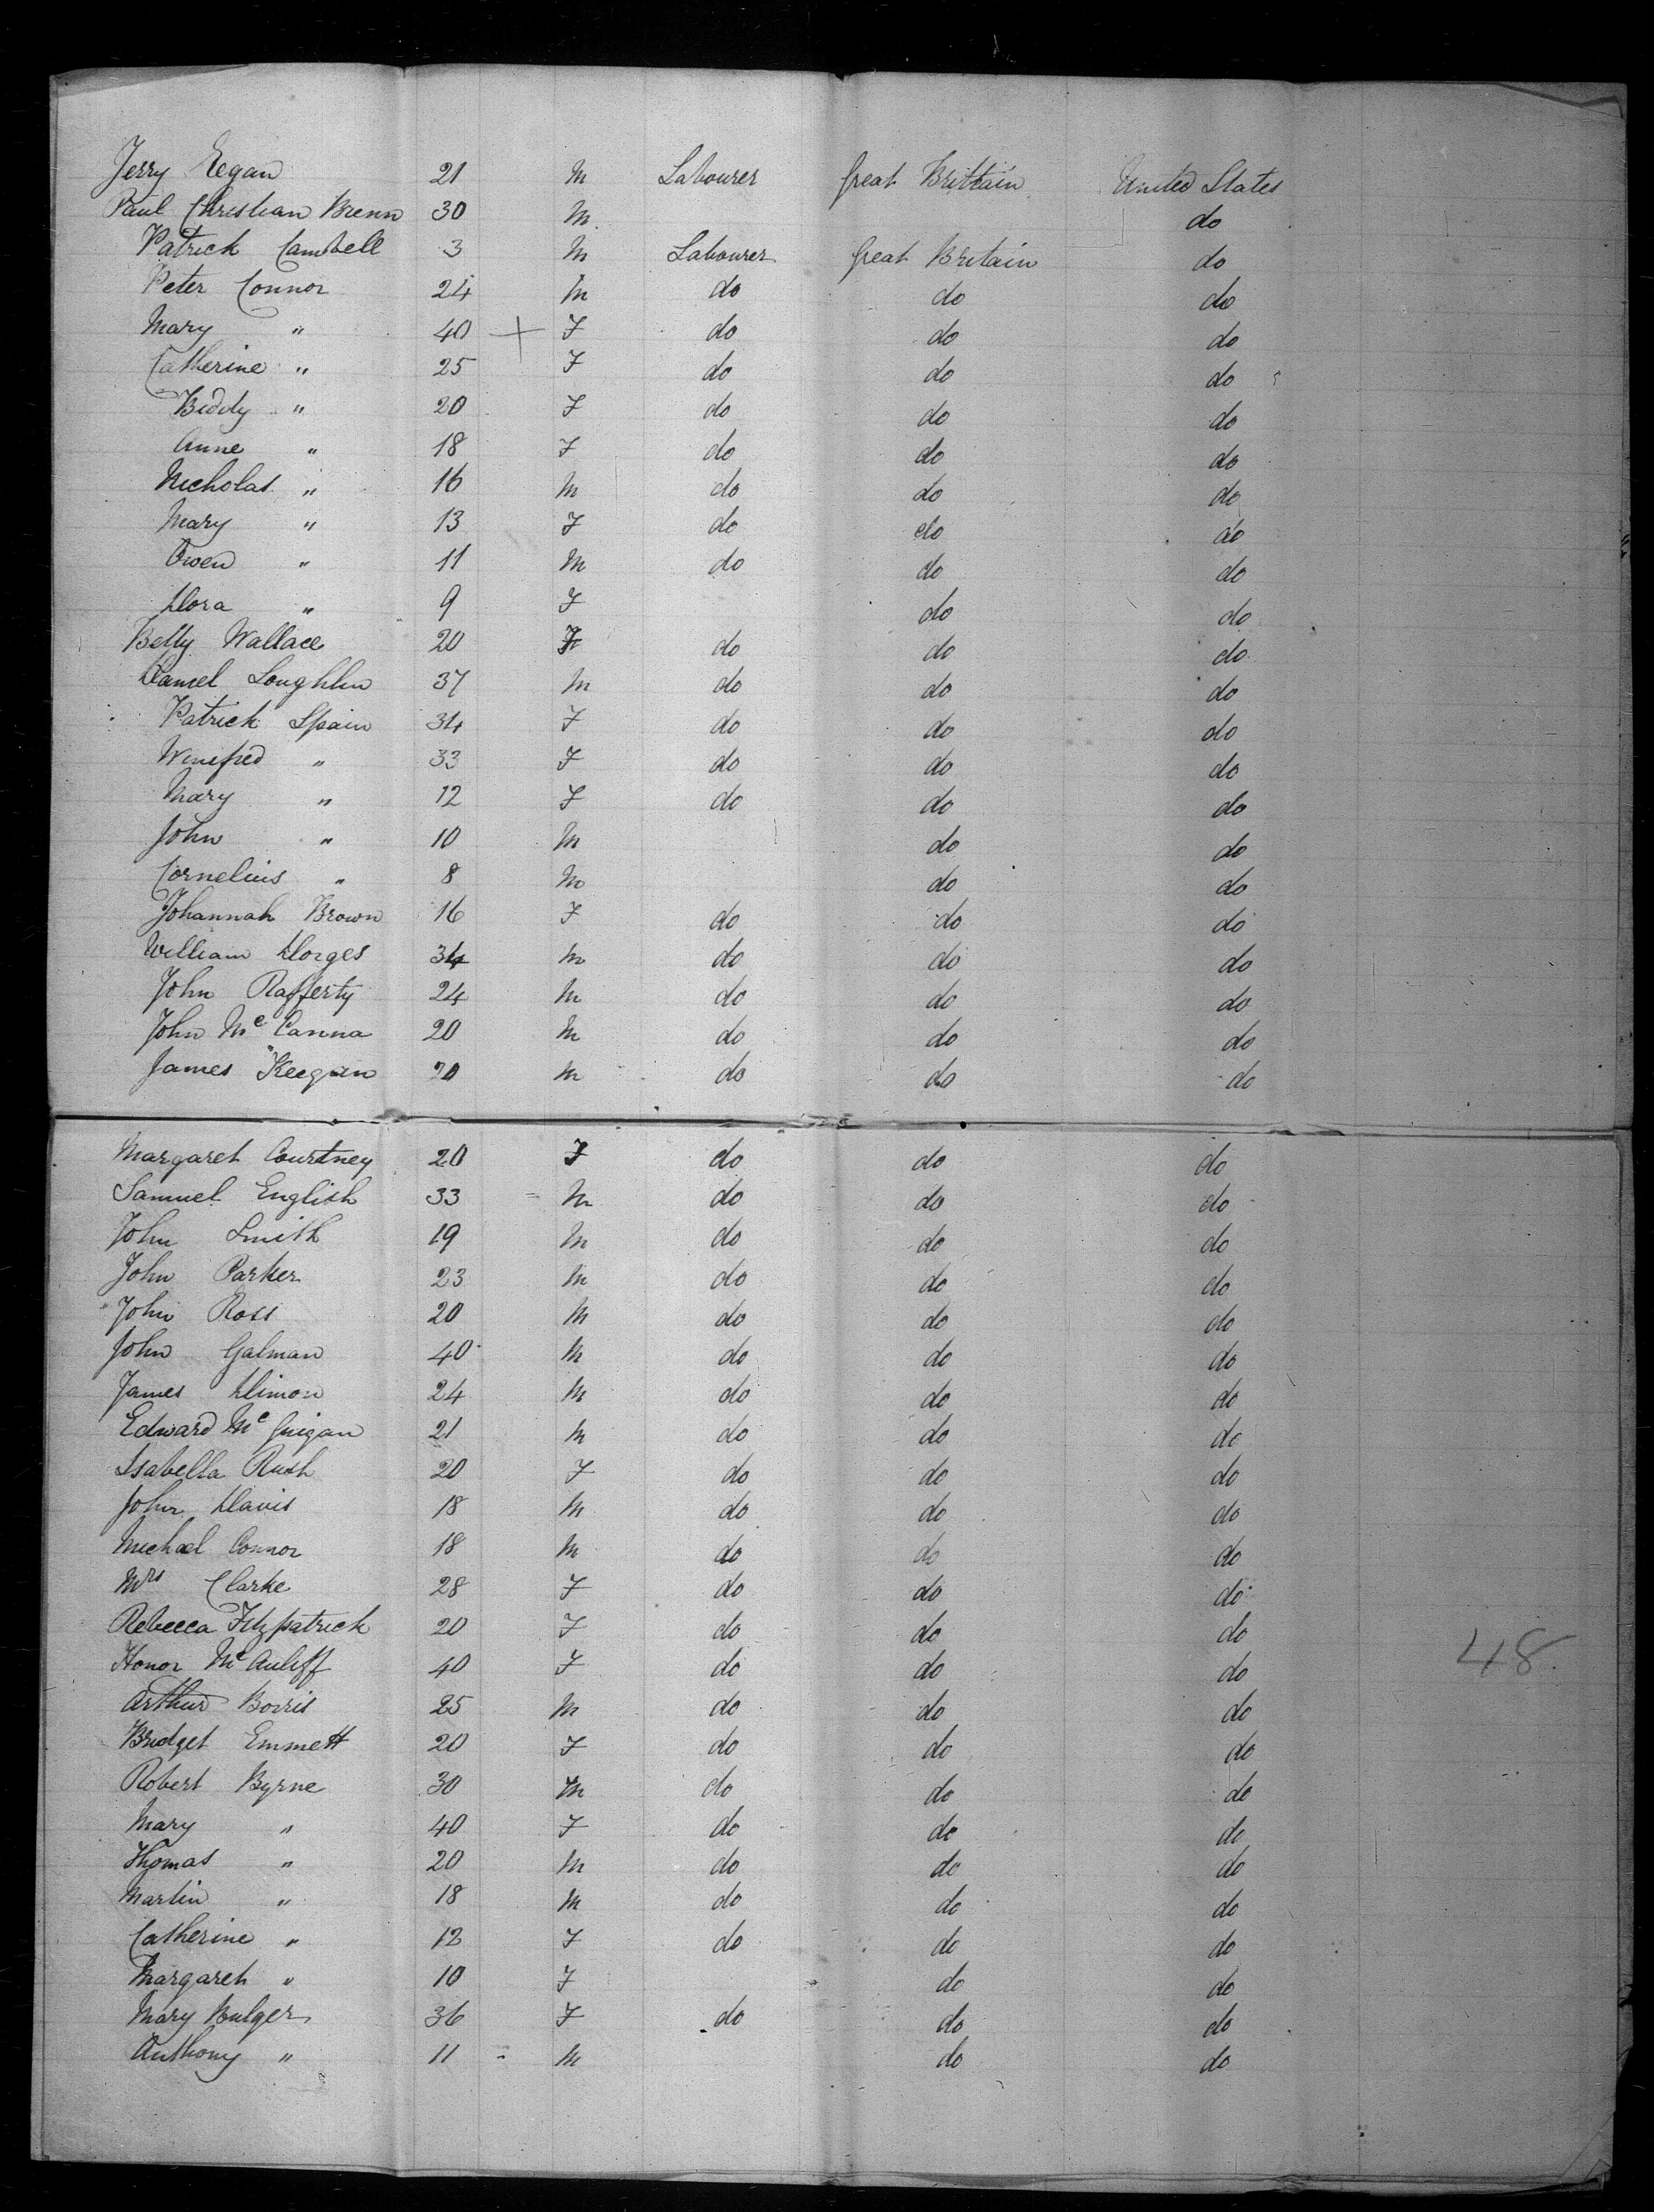 Jerry Regan 21 M Labourer Great Brittain United States
Paul Christian Brenn 30 M do
Patrick Cambell 3 M Labourer Great Britain do
Peter Connor 24 M do do do
Mary " 40 + F do do do
Catherine " 25 F do do do
Biddy " 20 F do do do
Anne " 18 F do do do
Nicholas " 16 M do do do
Mary " 13 F do do do
Owen " 11 M do do do
Dora " 9 F do do
Betty Wallace 20 F do do do
Daniel Loughlin 37 M do do do
Patrick Spain 34 F do do do
Winifred " 33 F do do do
Mary " 12 F do do do
John " 10 M do do
Cornelius " 8 M do do
Johannah Brown 16 F do do do
William Dorges 34 M do do do
John Rafferty 24 M do do do
John Mc Canna 20 M do do do
James Keegan 20 M do do do
Margaret Courtney 20 F do do do
Samuel English 33 M do do do
John Smith 19 M do do do
John Parker 23 M do do do
John Ross 20 M do do do
John Galman 40 M do do do
James Dimon 24 M do do do
Edward Mc Guigan 21 M do do do
Isabella Rush 20 F do do do
John Davis 18 M do do do
Michael Connor 18 M do do do
Mrs Clarke 28 F do do do
Rebecca Fitzpatrick 20 F do do do
Honor Mc Auliff 40 F do do do 48
Arthur Borris 25 M do do do
Bridget Emmett 20 F do do do
Robert Byrne 30 M do do do
Mary " 40 F do do do
Thomas " 20 M do do do
Martin " 18 M do do do
Catherine " 12 F do do do
Margaret " 10 F do do
Mary Bulger 36 F do do do
Anthony " 11 M do do